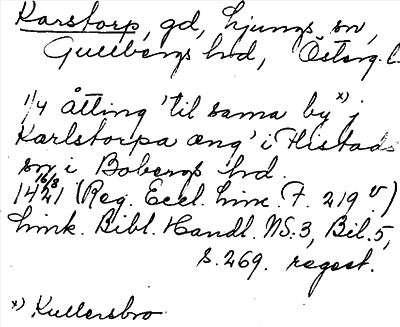 Karstorp, gd, Ljungs sn,
Gullbergs hd, Österg. l.
1/4 åtting 'til sama by x) j
Karlstorpa æng' i Flistads
sn i Bobergs hd.
16/8
1421 (Reg. Eccl. Linc. F. 219 v)
Link. Bibl. Handl. NS:3, Bil. 5,
s. 269. regest.
x) Kullersbro